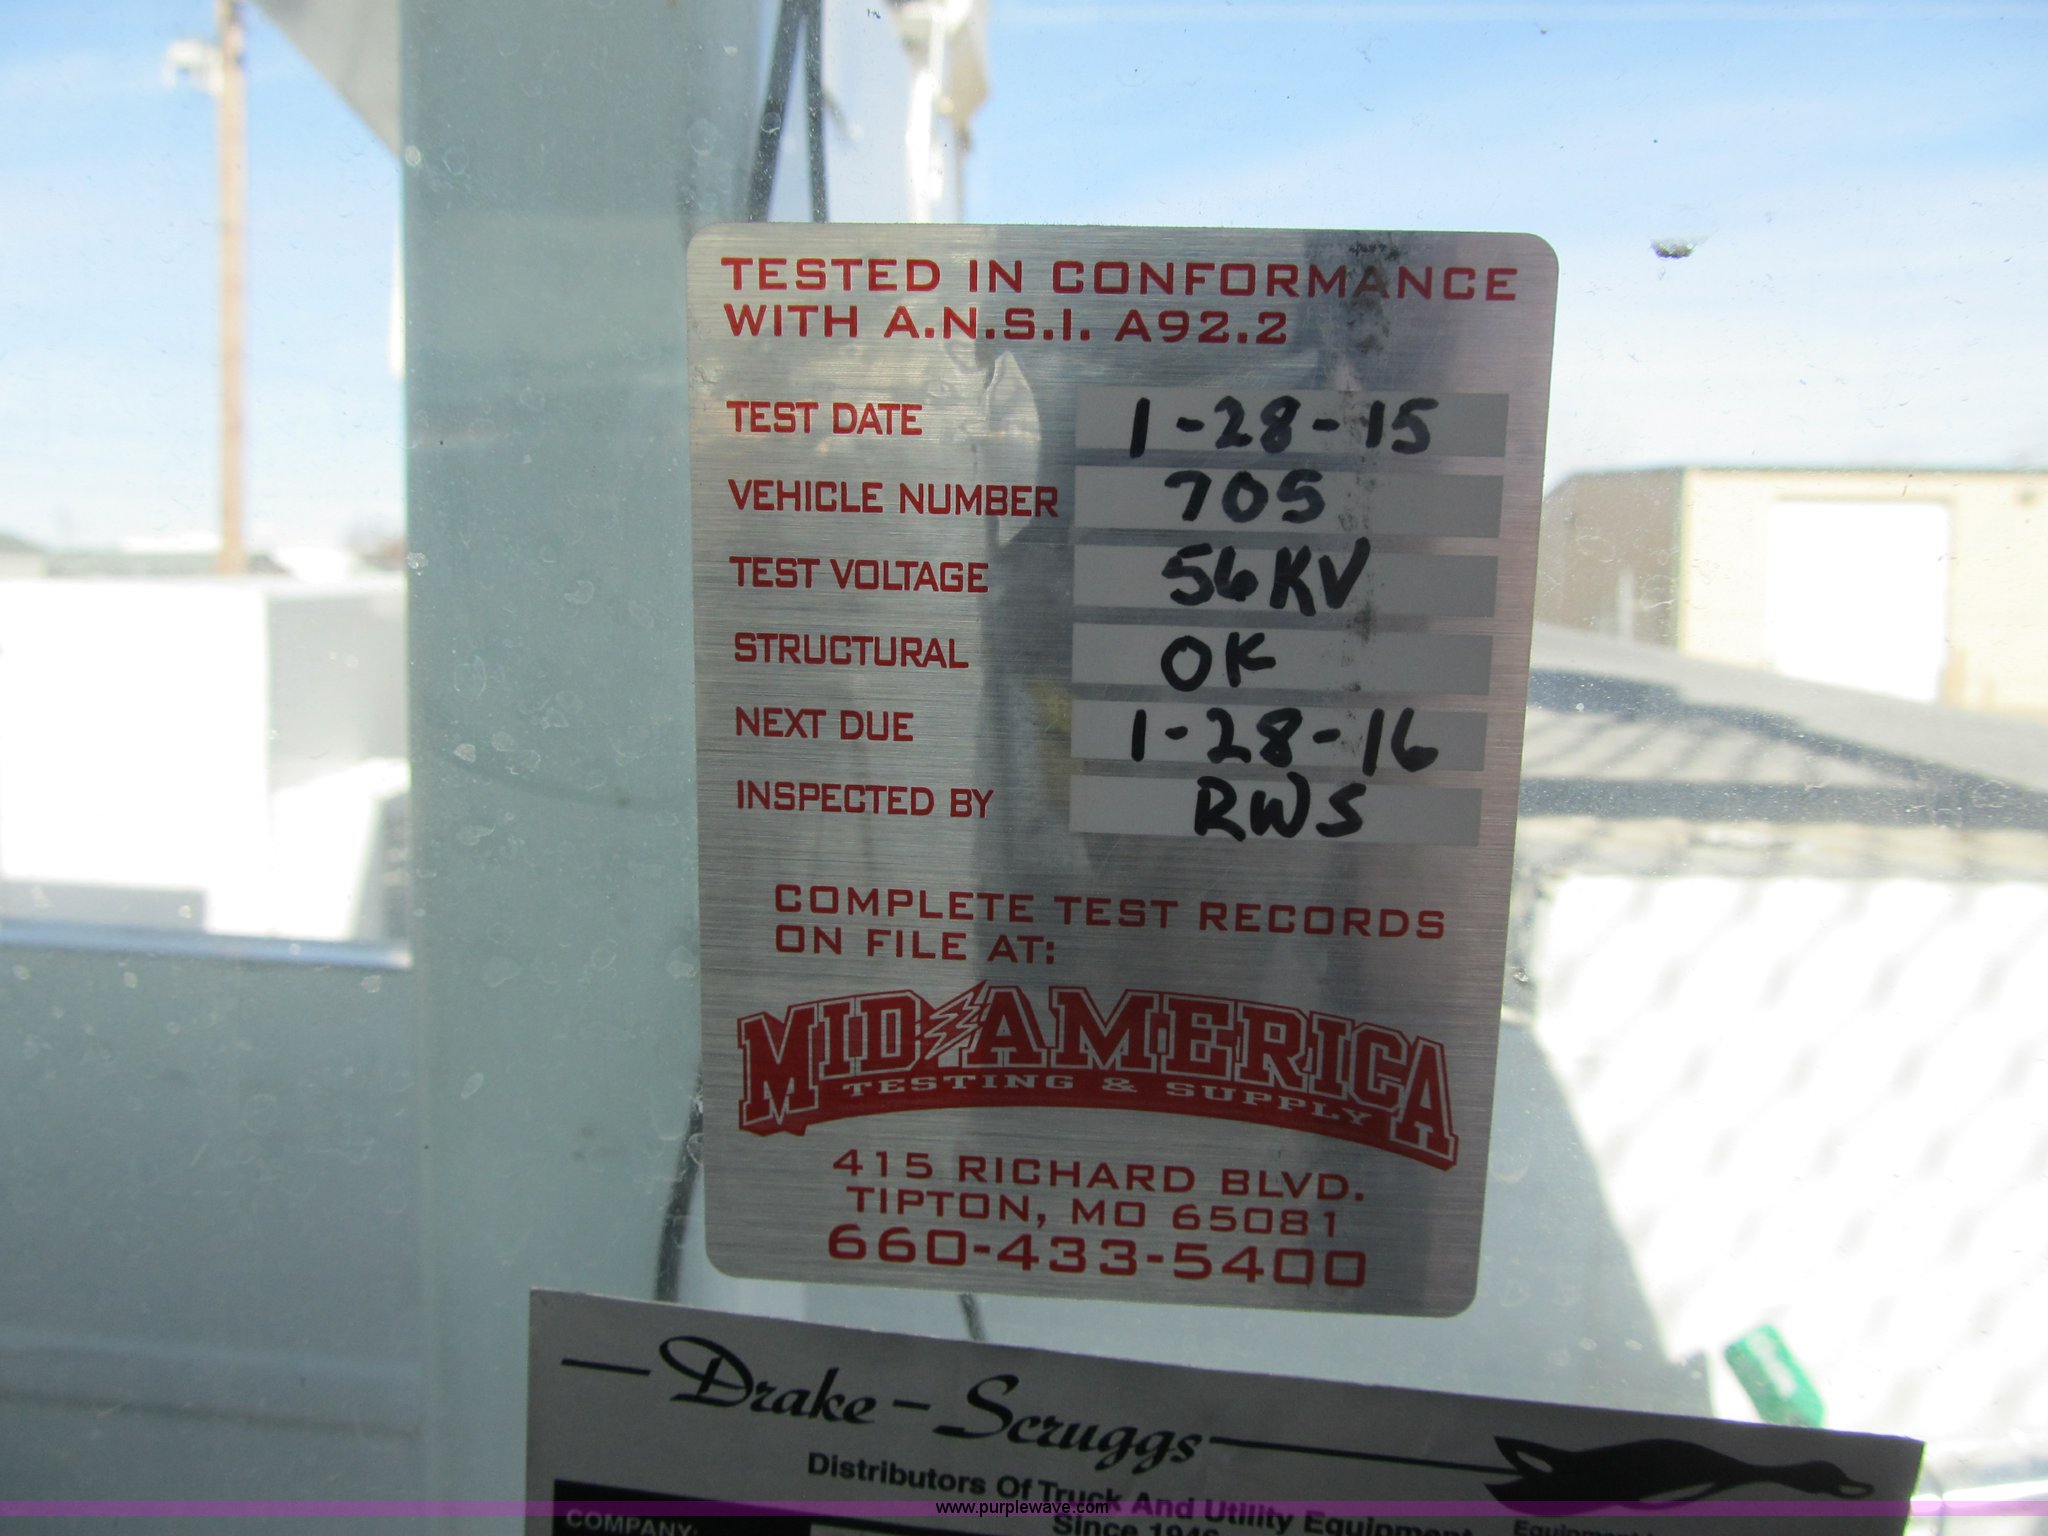 TESTED IN CONFORMANCE
WITH A.N.S.I. A92.2
TEST DATE 1-28-15
VEHICLE NUMBER 705
TEST VOLTAGE 56KV
STRUCTURAL OK
NEXT DUE 1-28-16
INSPECTED BY RWS
COMPLETE TEST RECORDS
ON FILE AT:
MID AMERICA
TESTING & SUPPLY
415 RICHARD BLVD.
TIPTON, MO 65081
660-433-5400
Drake-Scruggs
Distributors Of Truck And Utility Equipment
www.purplewave.com
Since
COMPANY: